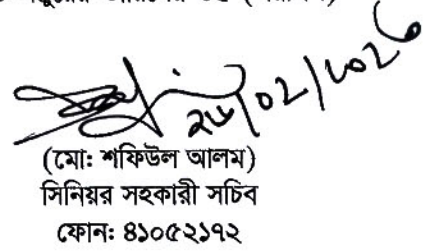 ২৬/০২/২০২৬
(মো: শফিউল আলম)
সিনিয়র সহকারী সচিব
ফোন: ৪১০৫২১৭২